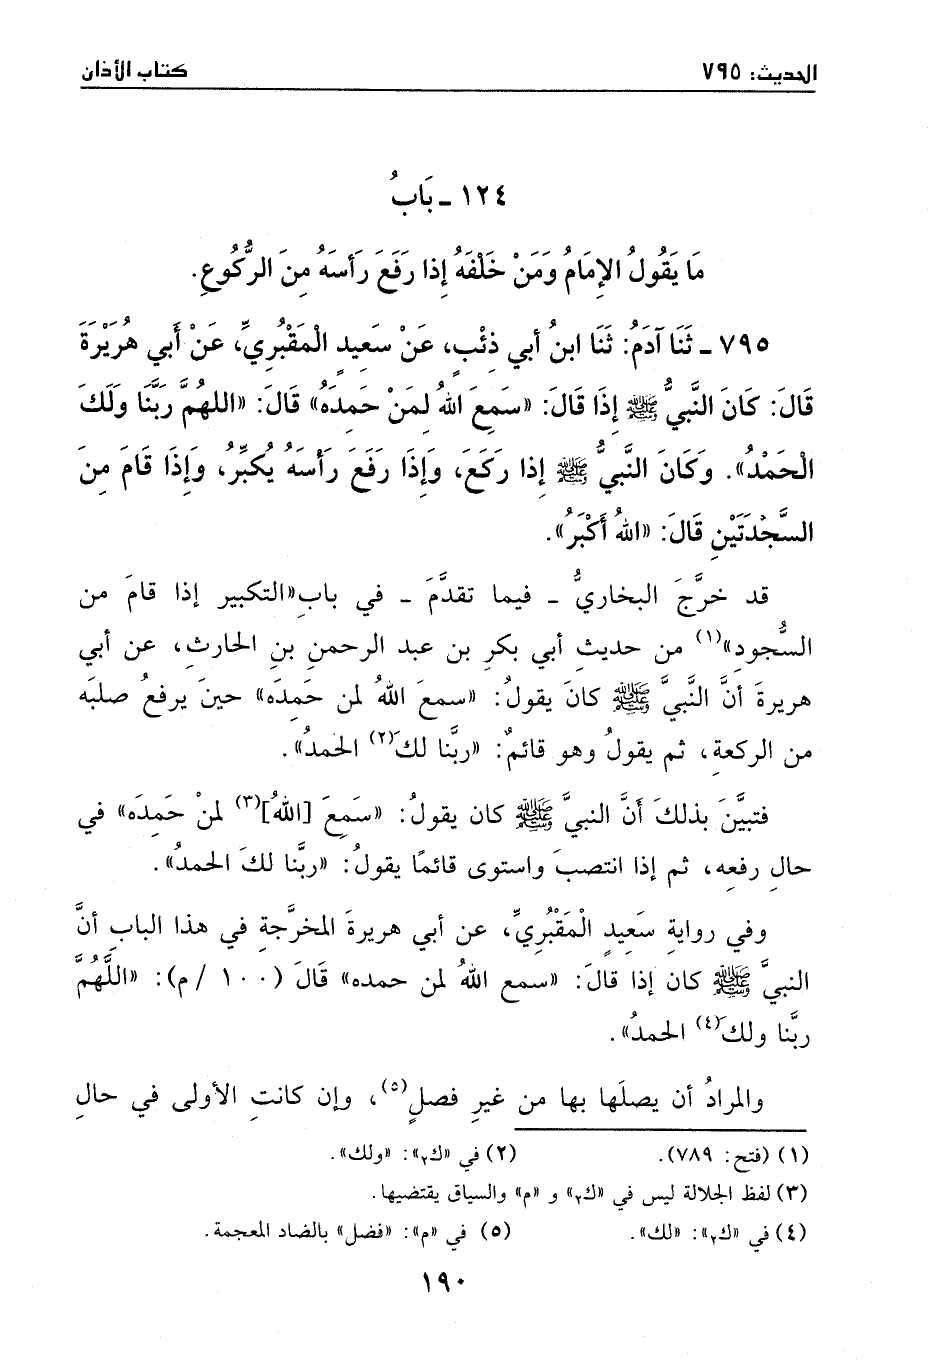 الحديث: ٧٩٥
كتاب الأذان
١٢٤ ـ بَابُ
مَا يَقُولُ الإمَامُ وَمَنْ خَلْفَهُ إذا رَفَعَ رَأسَهُ مِنَ الرُّكُوعِ.
٧٩٥ ـ ثَنَا آدَمُ: ثَنَا ابنُ أبي ذئْبٍ، عَنْ سَعِيدٍ الْمَقْبُرِيِّ، عَنْ أَبي هُرَيْرَةَ
قَالَ: كَانَ النَّبيُّ ﷺ إِذَا قَالَ: «سَمِعَ اللهُ لمَنْ حَمِدَهُ» قَالَ: «اللهُمَّ رَبَّنَا وَلَكَ
الْحَمْدُ». وَكَانَ النَّبيُّ ﷺ إذا رَكَعَ، وَإذَا رَفَعَ رَأْسَهُ يُكبِّرُ، وَإِذَا قَامَ مِنَ
السَّجْدَتَيْنِ قَالَ: «اللهُ أَكْبَرُ».
قد خرَّجَ البخاريُّ ـ فيما تقدَّمَ ـ في بابِ«التكبير إذا قامَ من
السُّجودِ»(١) من حديثِ أبي بكرِ بن عبد الرحمنِ بنِ الحارثِ، عن أبي
هريرةَ أنَّ النَّبيَّ ﷺ كانَ يقولُ: «سمعَ اللهُ لمن حَمِدَه» حينَ يرفعُ صلبَه
من الركعةِ، ثم يقولُ وهو قائمٌ: «ربَّنا لكَ(٢) الحمدُ».
فتبيَّنَ بذلكَ أنَّ النبيَّ ﷺ كان يقولُ: «سَمِعَ [اللهُ](٣) لمنْ حَمِدَه» في
حالِ رفعِه، ثم إذا انتصبَ واستوى قائمًا يقولُ: «ربَّنا لكَ الحمدُ».
وفي روايةِ سَعِيدٍ الْمَقْبُرِيِّ، عن أبي هريرةَ المخرَّجةِ في هذا البابِ أنَّ
النبيَّ ﷺ كان إذا قالَ: «سمع اللهُ لمن حمده» قَالَ (١٠٠ /م): «اللَّهُمَّ
ربَّنا ولكَ(٤) الحمدُ».
والمرادُ أن يصلَها بها من غيرِ فصلٍ(٥)، وإن كانتِ الأولى في حالِ
(١) (فتح: ٧٨٩).
(٢) في «ك٢»: «ولك».
(٣) لفظ الجلالة ليس في «ك٢» و «م» والسياق يقتضيها.
(٤) في «ك٢»: «لك».
(٥) في «م»: «فضل» بالضاد المعجمة.
١٩٠